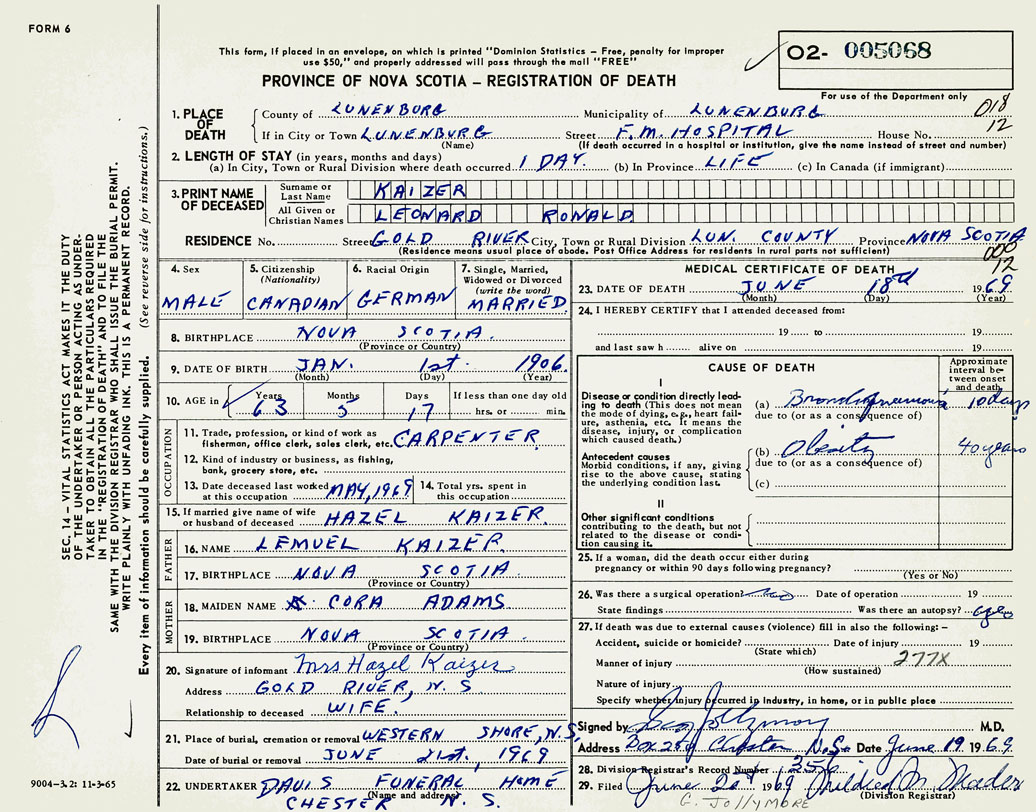 FORM 6
This form, if placed in an envelope, on which is printed "Dominion Statistics – Free, penalty for improper
use $50," and properly addressed will pass through the mail "FREE"
PROVINCE OF NOVA SCOTIA – REGISTRATION OF DEATH
O2- 005068
For use of the Department only
018
12
1. PLACE OF DEATH
County of LUNENBURG Municipality of LUNENBURG
If in City or Town LUNENBURG Street F.M. HOSPITAL House No.
(Name) (If death occurred in a hospital or institution, give the name instead of street and number)
2. LENGTH OF STAY (in years, months and days)
(a) In City, Town or Rural Division where death occurred 1 DAY. (b) In Province LIFE (c) In Canada (if immigrant)
3. PRINT NAME OF DECEASED
Surname or Last Name KAIZER
All Given or Christian Names LEONARD RONALD
RESIDENCE No. Street GOLD RIVER City, Town or Rural Division LUN. COUNTY Province NOVA SCOTIA
(Residence means usual place of abode. Post Office Address for residents in rural parts not sufficient)
000
12
4. Sex MALE
5. Citizenship (Nationality) CANADIAN
6. Racial Origin GERMAN
7. Single, Married, Widowed or Divorced (write the word) MARRIED
8. BIRTHPLACE NOVA SCOTIA.
(Province or Country)
9. DATE OF BIRTH JAN. 1st. 1906.
(Month) (Day) (Year)
10. AGE in Years Months Days If less than one day old
63 5 17 hrs. or min.
OCCUPATION
11. Trade, profession, or kind of work as
fisherman, office clerk, sales clerk, etc. CARPENTER
12. Kind of industry or business, as fishing,
bank, grocery store, etc.
13. Date deceased last worked at this occupation MAY, 1969
14. Total yrs. spent in this occupation
15. If married give name of wife
or husband of deceased HAZEL KAIZER.
FATHER
16. NAME LEMUEL KAIZER.
17. BIRTHPLACE NOVA SCOTIA
(Province or Country)
MOTHER
18. MAIDEN NAME CORA ADAMS
19. BIRTHPLACE NOVA SCOTIA
(Province or Country)
20. Signature of informant Mrs Hazel Kaizer
Address GOLD RIVER, N.S
Relationship to deceased WIFE.
21. Place of burial, cremation or removal WESTERN SHORE, N.S.
Date of burial or removal JUNE 21st, 1969
22. UNDERTAKER DAVIS FUNERAL HOME
(Name and address)
CHESTER N.S.
MEDICAL CERTIFICATE OF DEATH
23. DATE OF DEATH JUNE 18th 1969
(Month) (Day) (Year)
24. I HEREBY CERTIFY that I attended deceased from:
19 to 19
and last saw h alive on 19
CAUSE OF DEATH
Approximate interval between onset and death
I
Disease or condition directly leading
to death (This does not mean
the mode of dying, e.g., heart failure,
asthenia, etc. It means the
disease, injury, or complication
which caused death.)
(a) Bronchopneumonia 10 days
due to (or as a consequence of)
Antecedent causes
Morbid conditions, if any, giving
rise to the above cause, stating
the underlying condition last.
(b) Obesity 40 years
due to (or as a consequence of)
(c)
II
Other significant conditions
contributing to the death, but not
related to the disease or condition
causing it.
25. If a woman, did the death occur either during
pregnancy or within 90 days following pregnancy?
(Yes or No)
26. Was there a surgical operation? no Date of operation 19
State findings Was there an autopsy? yes
27. If death was due to external causes (violence) fill in also the following: –
Accident, suicide or homicide? Date of injury 19
(State which)
Manner of injury 277X
(How sustained)
Nature of injury
Specify whether injury occurred in industry, in home, or in public place
Signed by M.D.
Address Box 259 Chester N.S. Date June 19 1969.
28. Division Registrar's Record Number 356
29. Filed June 20th 1969
(Division Registrar)
G. JOLLYMORE
SEC. 14 – VITAL STATISTICS ACT MAKES IT THE DUTY
OF THE UNDERTAKER OR PERSON ACTING AS UNDER-
TAKER TO OBTAIN ALL THE PARTICULARS REQUIRED
IN THE "REGISTRATION OF DEATH" AND TO FILE THE
SAME WITH THE DIVISION REGISTRAR WHO SHALL ISSUE THE BURIAL PERMIT.
WRITE PLAINLY WITH UNFADING INK. THIS IS A PERMANENT RECORD.
Every item of information should be carefully supplied. (See reverse side for instructions.)
9004–3.2: 11-3-65